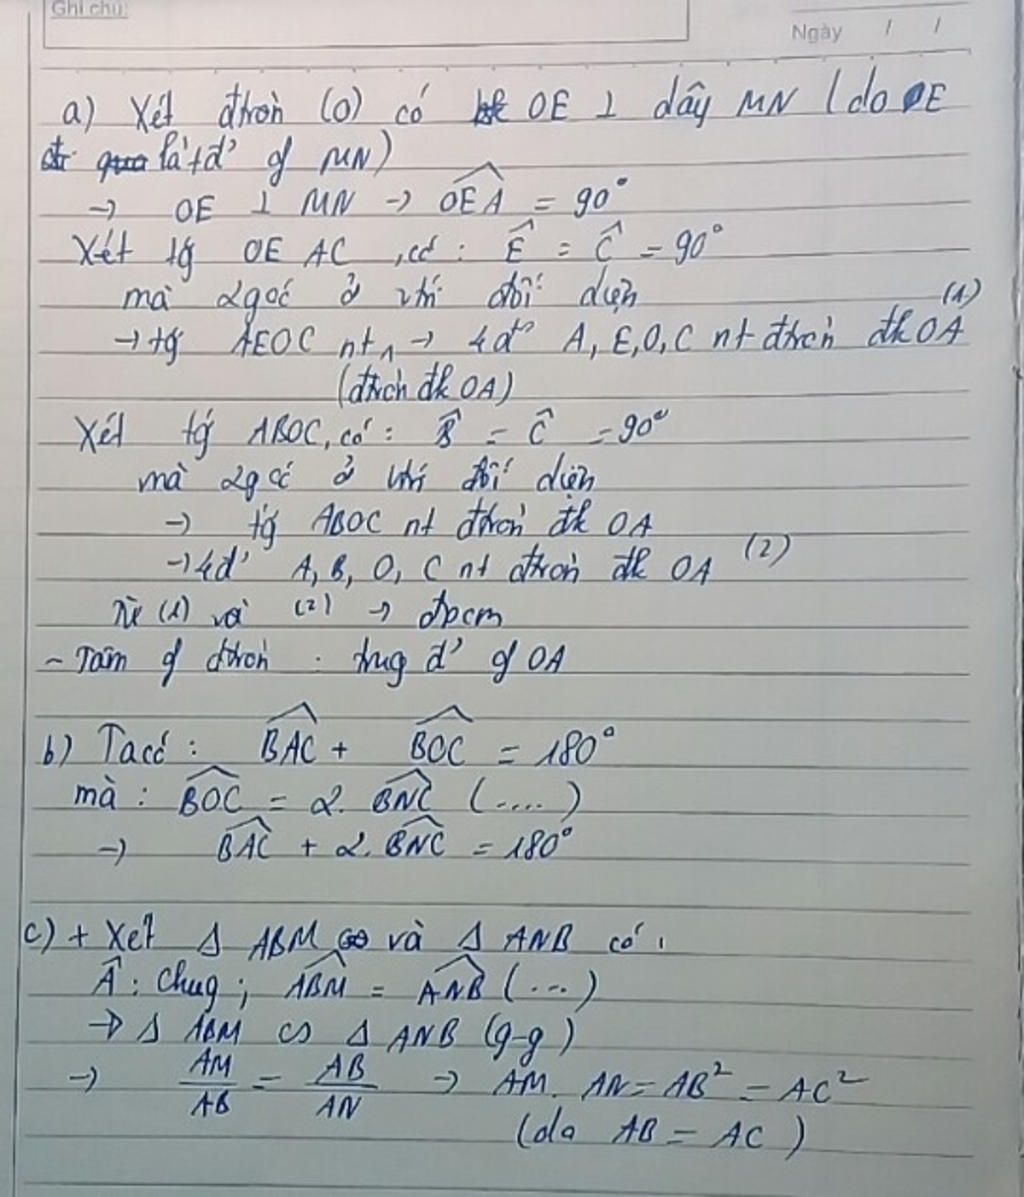 Ghi chú:
Ngày / /
a) Xét đtròn (O) có OE ⊥ dây MN (do OE
là tđ' of MN)
→ OE ⊥ MN → OEA = 90°
Xét tg OEAC, có: Ê = Ĉ = 90°
mà 2 góc ở vtrí đối diện
→ tg AEOC nt → 4 đ' A, E, O, C nt đtròn đk OA (1)
(đtròn đk OA)
Xét tg ABOC, có: B̂ = Ĉ = 90°
mà 2 góc ở vtrí đối diện
→ tg ABOC nt đtròn đk OA
→ 4 đ' A, B, O, C nt đtròn đk OA (2)
Từ (1) và (2) → đpcm
- Tâm of đtròn : trug đ' of OA
b) Ta có: BAC + BOC = 180°
mà: BOC = 2. BNC (....)
→ BAC + 2. BNC = 180°
c) + Xét Δ ABM và Δ ANB có:
Â: Chug; ABM = ANB (...)
→ Δ ABM ∽ Δ ANB (g-g)
→ AM/AB = AB/AN → AM. AN = AB² = AC²
(do AB = AC)